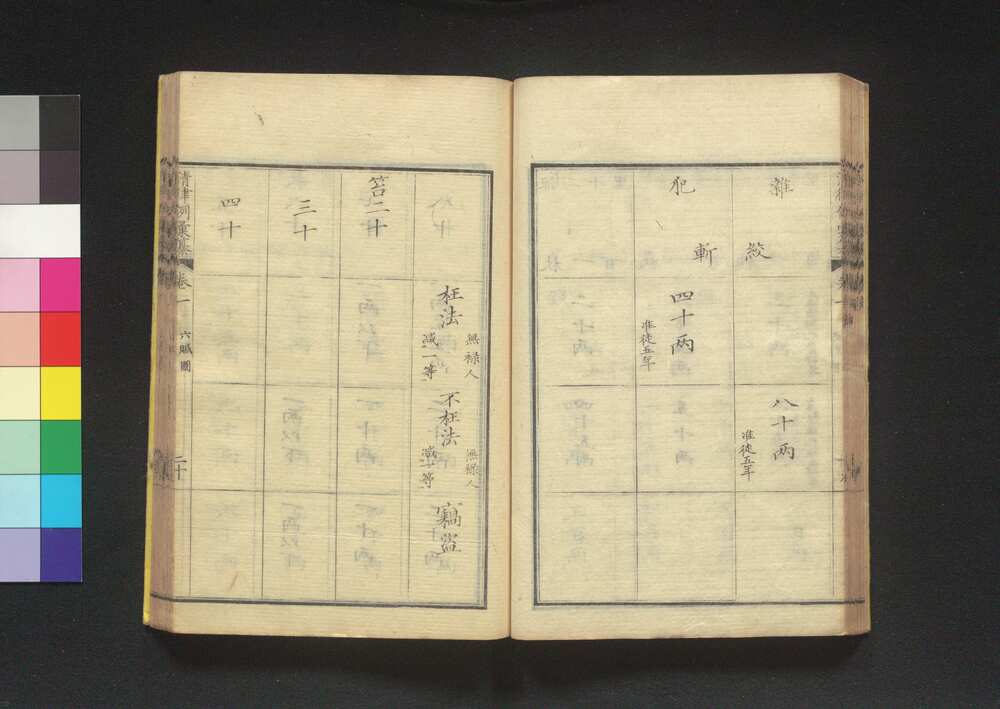 雜
絞
八十兩
准徒五年
犯
斬
四十兩
准徒五年
枉法
無祿人
減一等
不枉法
無祿人
減一等
竊盜
笞二十
三十
四十
清律例彙纂
卷一
六贓圖
二十